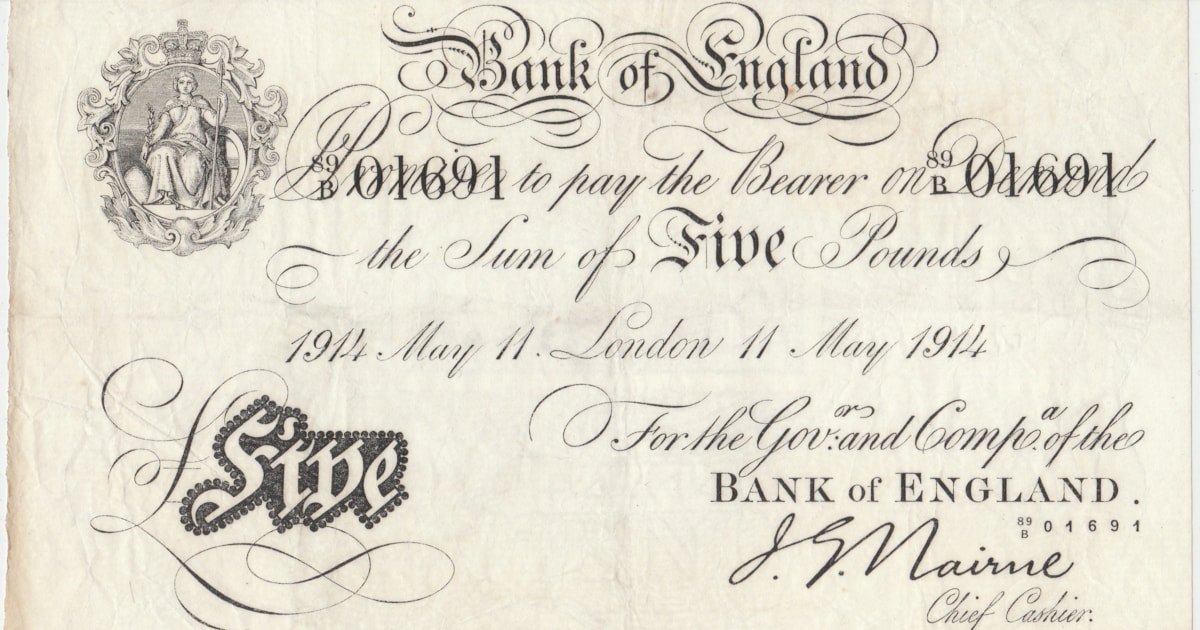 Bank of England
89/B 01691 I Promise to pay the Bearer on Demand 89/B 01691
the Sum of Five Pounds
1914 May 11. London 11 May 1914
£Five
For the Gov.r and Comp.a of the
BANK of ENGLAND.
89/B 01691
J. G. Nairne
Chief Cashier.